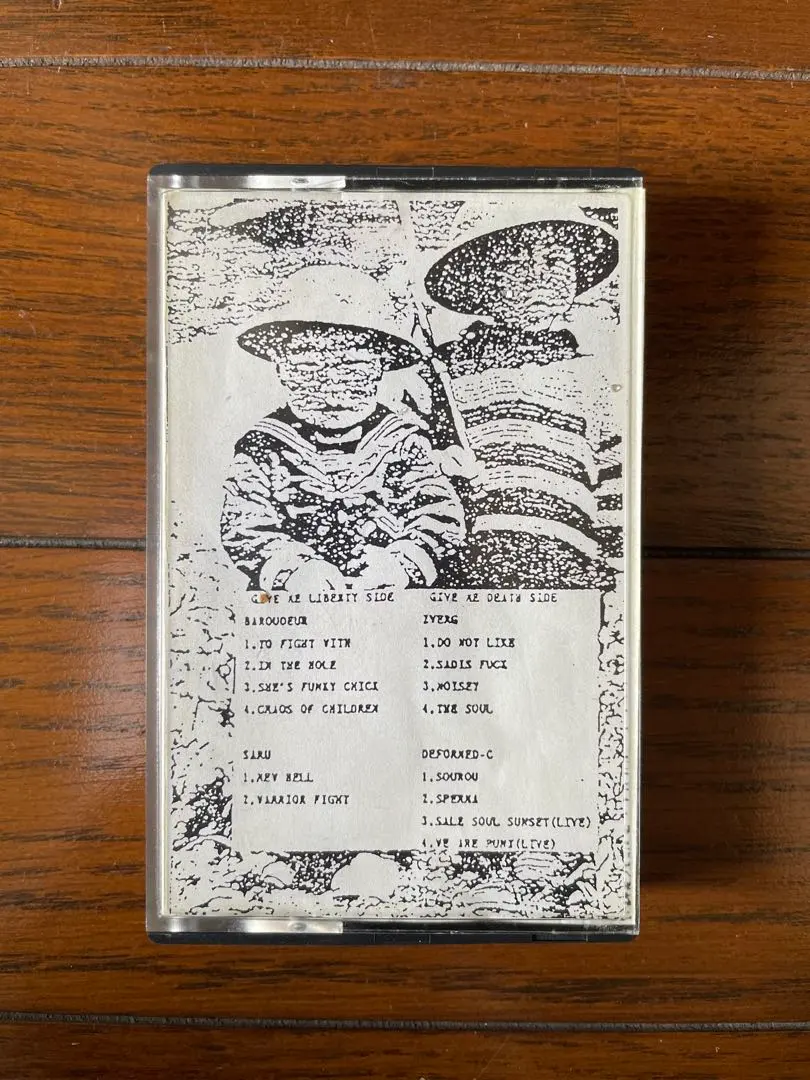 GIVE ME LIBERTY SIDE
BAROUDEUR
1.TO FIGHT WITH
2.IN THE HOLE
3.SHE'S FUNKY CHICK
4.CHAOS OF CHILDREN
SARU
1.NEW HELL
2.WARRIOR FIGHT
GIVE ME DEATH SIDE
ZVERG
1.DO NOT LIKE
2.SADIS FUCK
3.NOISET
4.THE SOUL
DEFORMED-C
1.SOUROU
2.SPERMA
3.SALE SOUL SUNSET(LIVE)
4.WE ARE PUNK(LIVE)